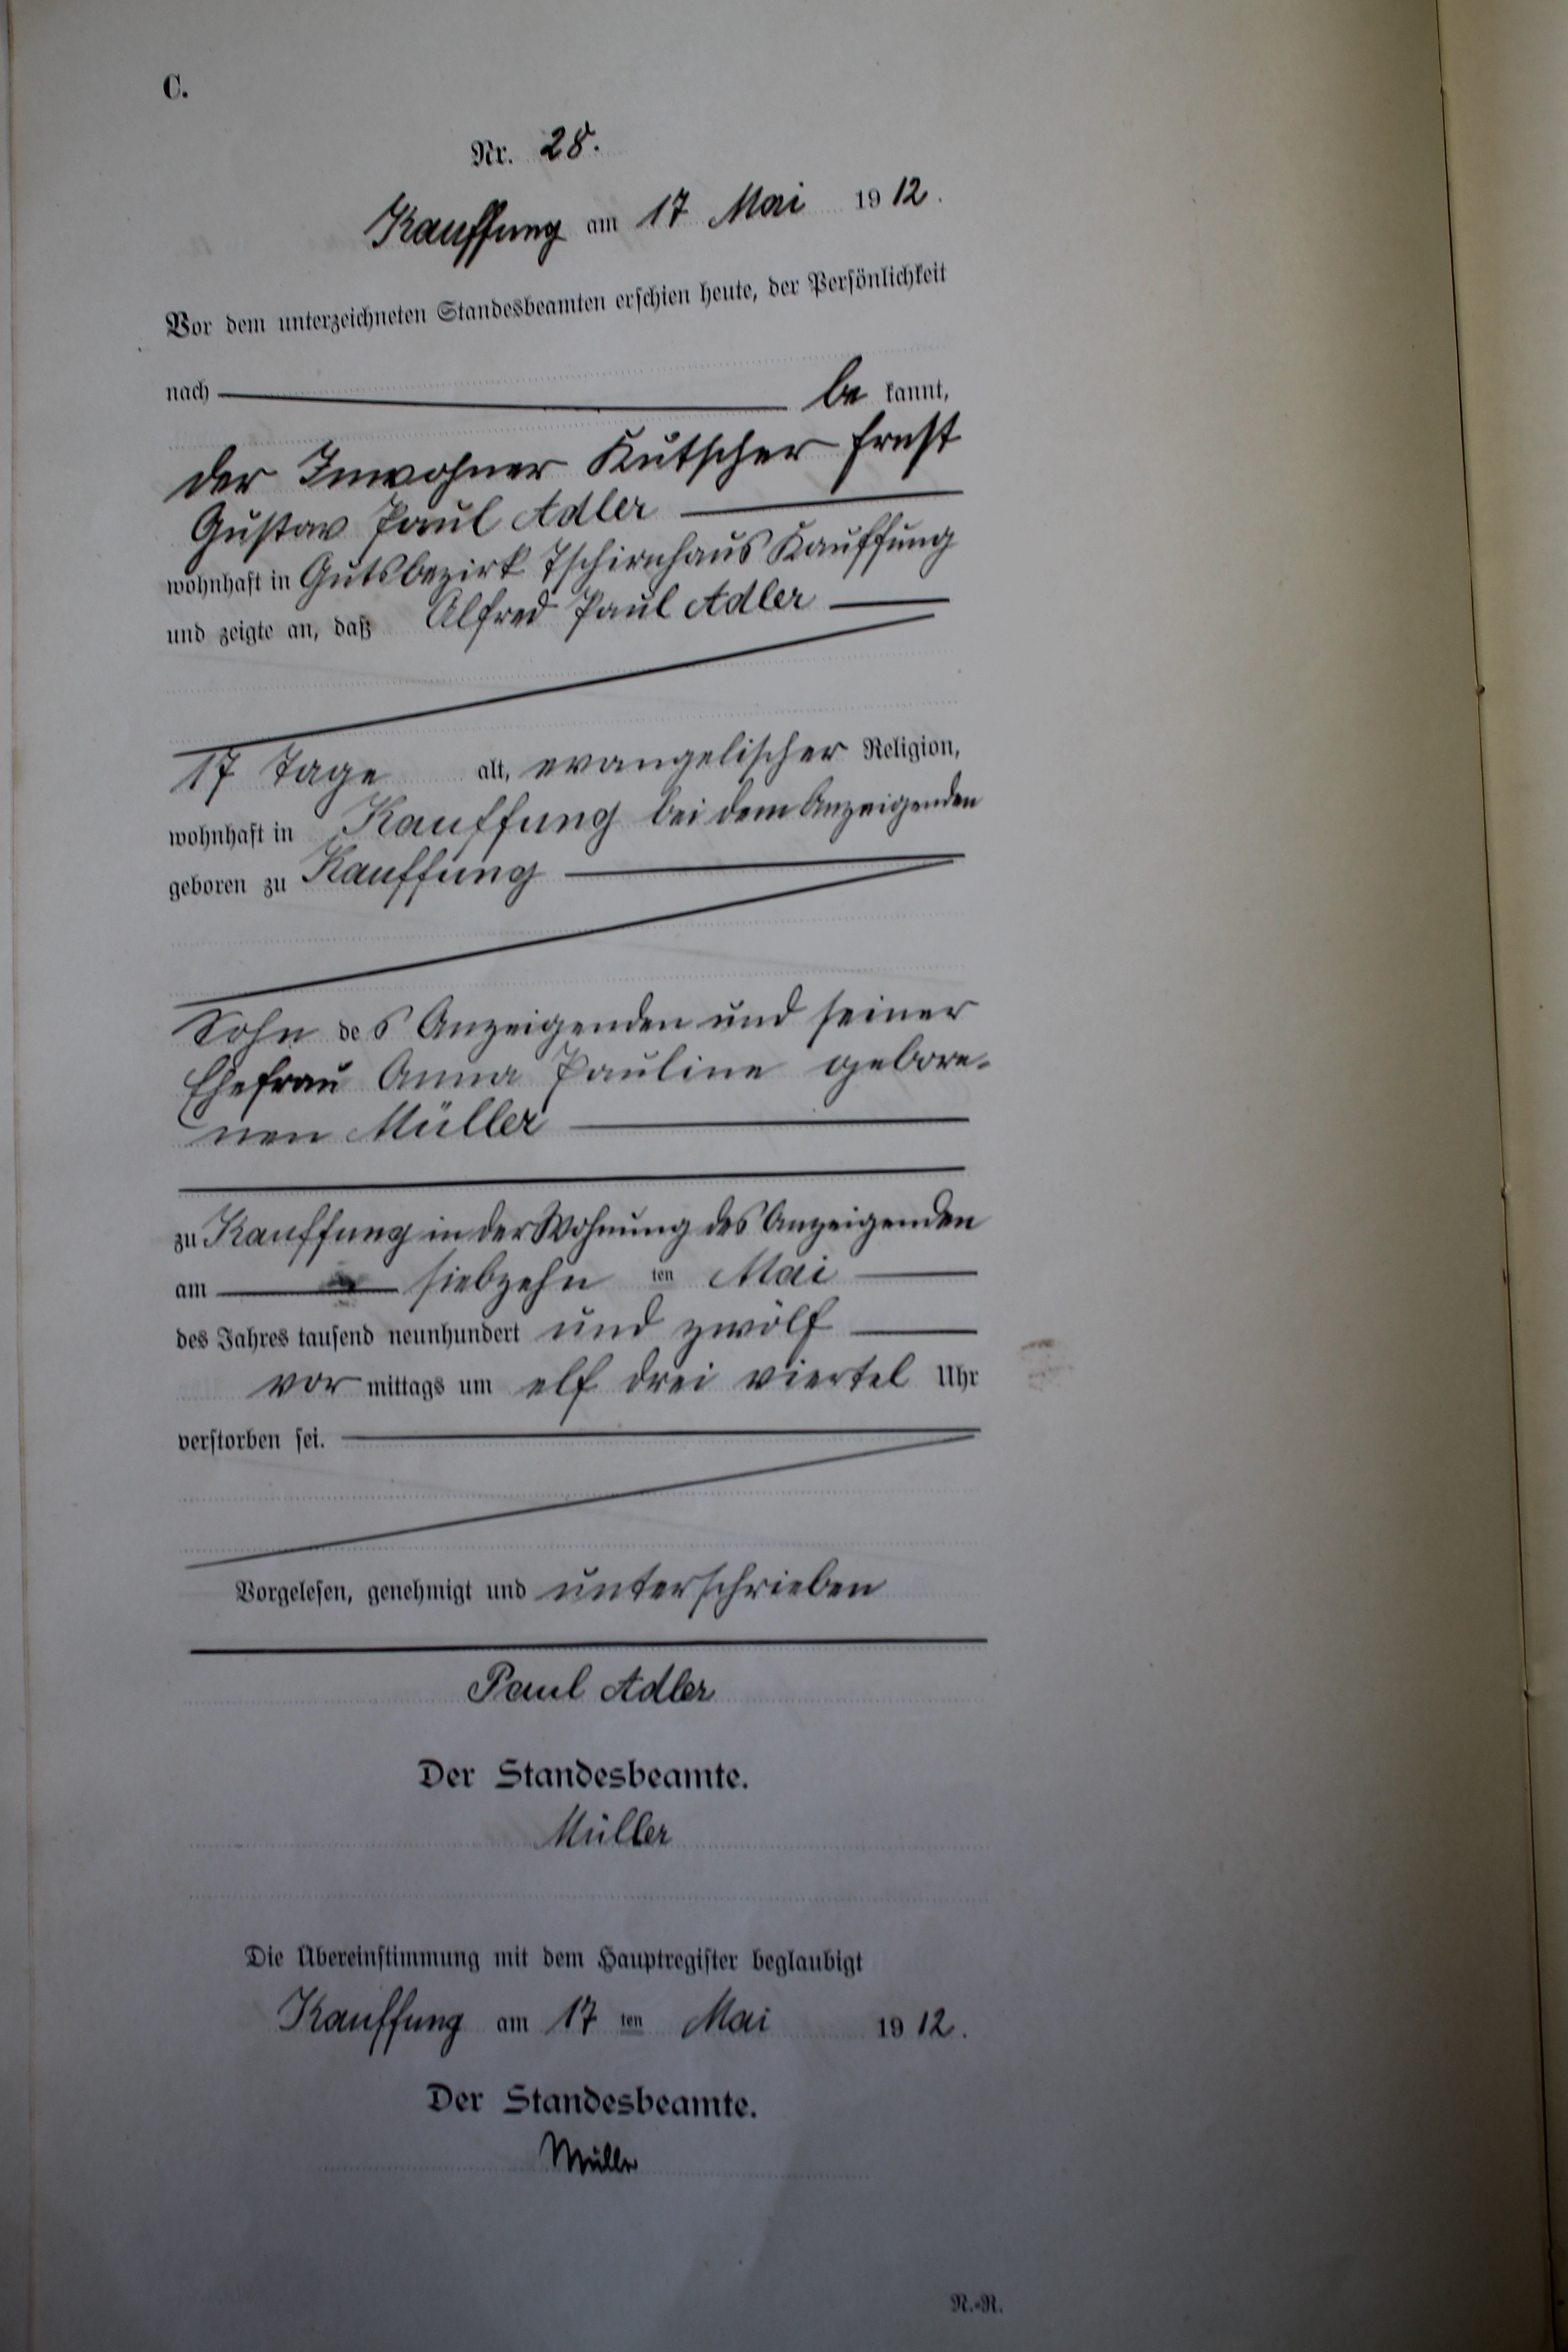 C.
Nr. 28.
Kauffung am 17 Mai 1912.
Vor dem unterzeichneten Standesbeamten erschien heute, der Persönlichkeit
nach be kannt,
der Inwohner Kutscher Ernst
Gustav Paul Adler
wohnhaft in Gutsbezirk Tschirnhaus Kauffung
und zeigte an, daß Alfred Paul Adler
17 Tage alt, evangelischer Religion,
wohnhaft in Kauffung bei dem Anzeigenden
geboren zu Kauffung
Sohn des Anzeigenden und seiner
Ehefrau Anna Pauline gebore-
nen Müller
zu Kauffung in der Wohnung des Anzeigenden
am siebzehn ten Mai
des Jahres tausend neunhundert und zwölf
vor mittags um elf drei viertel Uhr
verstorben sei.
Vorgelesen, genehmigt und unterschrieben
Paul Adler
Der Standesbeamte.
Müller
Die Übereinstimmung mit dem Hauptregister beglaubigt
Kauffung am 17 ten Mai 1912.
Der Standesbeamte.
Müller
N.-R.